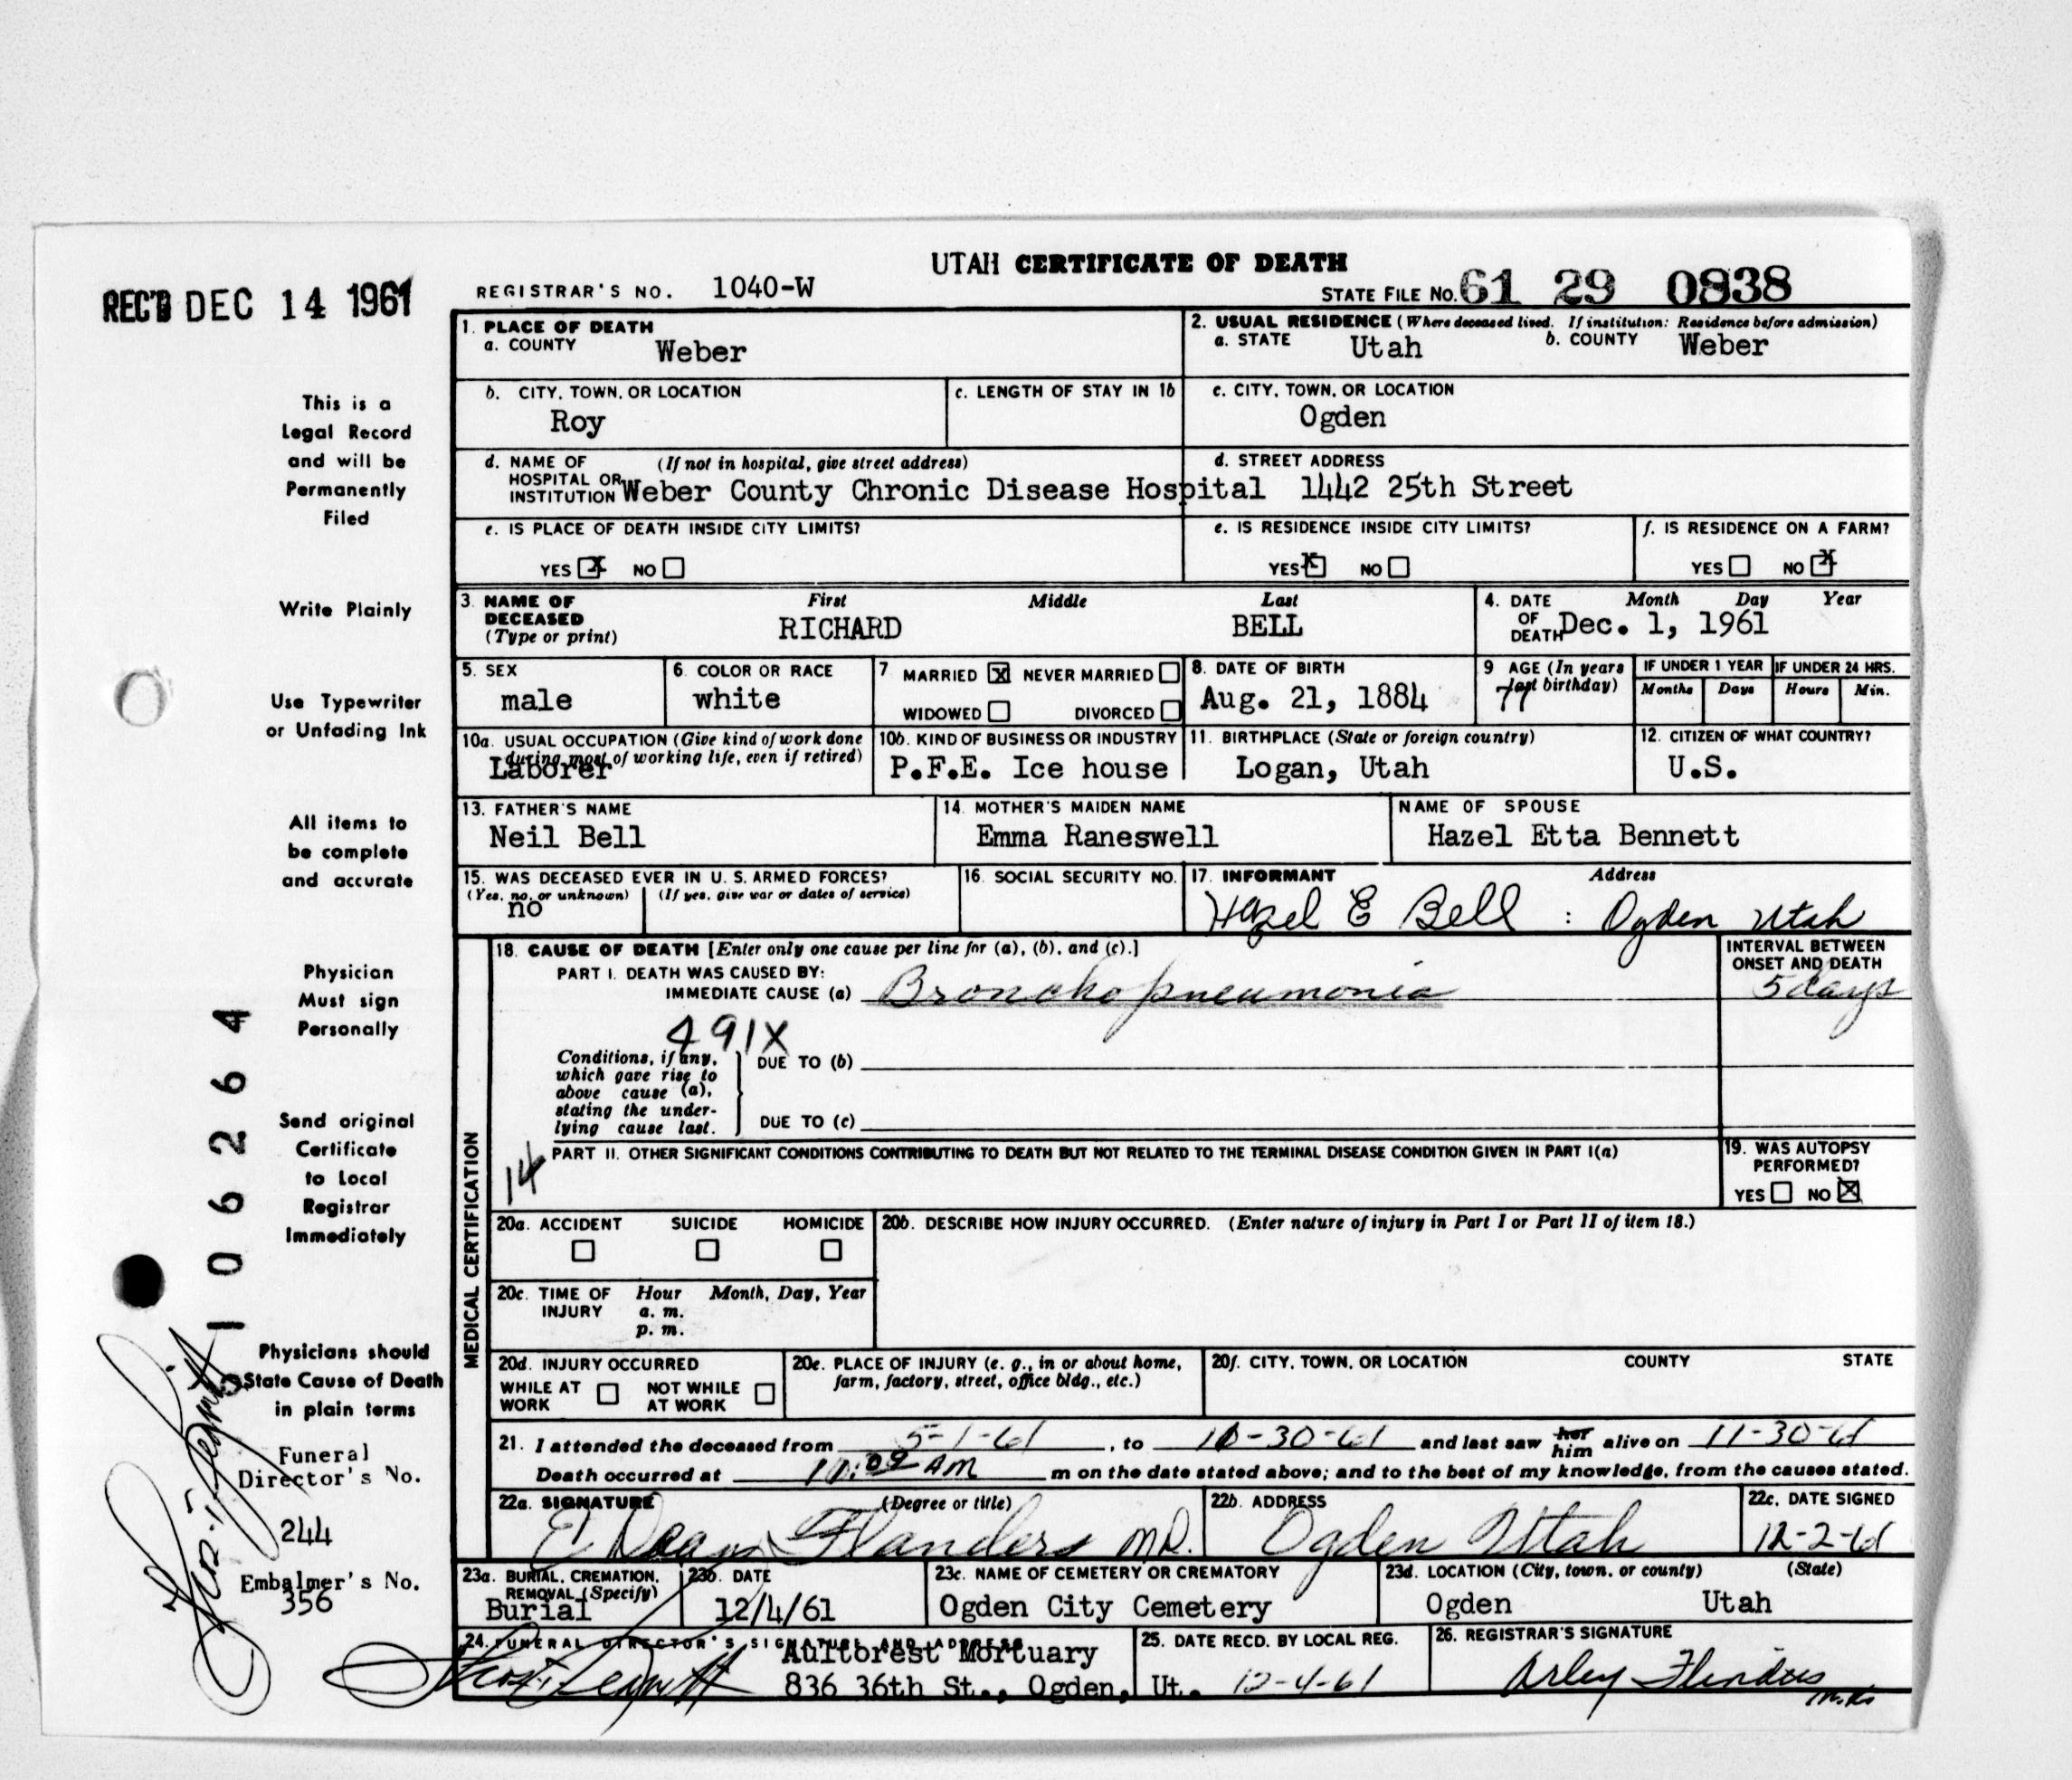 UTAH CERTIFICATE OF DEATH
REC'D DEC 14 1961
REGISTRAR'S NO. 1040-W
STATE FILE NO. 61 29 0838
1. PLACE OF DEATH
a. COUNTY Weber
2. USUAL RESIDENCE (Where deceased lived. If institution: Residence before admission)
a. STATE Utah b. COUNTY Weber
b. CITY, TOWN, OR LOCATION Roy
c. LENGTH OF STAY IN 1b
c. CITY, TOWN, OR LOCATION Ogden
d. NAME OF HOSPITAL OR INSTITUTION (If not in hospital, give street address) Weber County Chronic Disease Hospital
d. STREET ADDRESS 1442 25th Street
e. IS PLACE OF DEATH INSIDE CITY LIMITS? YES X NO
e. IS RESIDENCE INSIDE CITY LIMITS? YES X NO
f. IS RESIDENCE ON A FARM? YES NO X
3. NAME OF DECEASED (Type or print) First Middle Last
RICHARD BELL
4. DATE OF DEATH Month Day Year
Dec. 1, 1961
5. SEX male
6. COLOR OR RACE white
7 MARRIED X NEVER MARRIED
WIDOWED DIVORCED
8. DATE OF BIRTH Aug. 21, 1884
9 AGE (In years last birthday) 77
IF UNDER 1 YEAR Months Days
IF UNDER 24 HRS. Hours Min.
10a. USUAL OCCUPATION (Give kind of work done during most of working life, even if retired) Laborer
10b. KIND OF BUSINESS OR INDUSTRY P.F.E. Ice house
11. BIRTHPLACE (State or foreign country) Logan, Utah
12. CITIZEN OF WHAT COUNTRY? U.S.
13. FATHER'S NAME Neil Bell
14. MOTHER'S MAIDEN NAME Emma Raneswell
NAME OF SPOUSE Hazel Etta Bennett
15. WAS DECEASED EVER IN U. S. ARMED FORCES?
(Yes, no, or unknown) (If yes, give war or dates of service)
no
16. SOCIAL SECURITY NO.
17. INFORMANT Address
Hazel E Bell : Ogden Utah
18. CAUSE OF DEATH [Enter only one cause per line for (a), (b), and (c).]
INTERVAL BETWEEN ONSET AND DEATH
PART I. DEATH WAS CAUSED BY:
IMMEDIATE CAUSE (a) Bronchopneumonia 5 days
491X
Conditions, if any, which gave rise to above cause (a), stating the underlying cause last.
DUE TO (b)
DUE TO (c)
14
PART II. OTHER SIGNIFICANT CONDITIONS CONTRIBUTING TO DEATH BUT NOT RELATED TO THE TERMINAL DISEASE CONDITION GIVEN IN PART I(a)
19. WAS AUTOPSY PERFORMED?
YES NO X
MEDICAL CERTIFICATION
20a. ACCIDENT SUICIDE HOMICIDE
20b. DESCRIBE HOW INJURY OCCURRED. (Enter nature of injury in Part I or Part II of item 18.)
20c. TIME OF INJURY Hour Month, Day, Year
a. m.
p. m.
20d. INJURY OCCURRED
WHILE AT WORK NOT WHILE AT WORK
20e. PLACE OF INJURY (e. g., in or about home, farm, factory, street, office bldg., etc.)
20f. CITY, TOWN, OR LOCATION COUNTY STATE
21. I attended the deceased from 5-1-61, to 10-30-61 and last saw her him alive on 11-30-61
Death occurred at AM m on the date stated above; and to the best of my knowledge, from the causes stated.
22a. SIGNATURE (Degree or title)
E Dean Flanders M.D.
22b. ADDRESS Ogden Utah
22c. DATE SIGNED 12-2-61
23a. BURIAL, CREMATION, REMOVAL (Specify) Burial
23b. DATE 12/4/61
23c. NAME OF CEMETERY OR CREMATORY Ogden City Cemetery
23d. LOCATION (City, town, or county) (State)
Ogden Utah
24. FUNERAL DIRECTOR'S SIGNATURE AND ADDRESS
Aultorest Mortuary
836 36th St., Ogden, Ut.
25. DATE RECD. BY LOCAL REG. 12-4-61
26. REGISTRAR'S SIGNATURE
Arley Flinders
This is a
Legal Record
and will be
Permanently
Filed
Write Plainly
Use Typewriter
or Unfading Ink
All items to
be complete
and accurate
Physician
Must sign
Personally
Send original
Certificate
to Local
Registrar
Immediately
Physicians should
State Cause of Death
in plain terms
Funeral
Director's No.
244
Embalmer's No.
356
106264